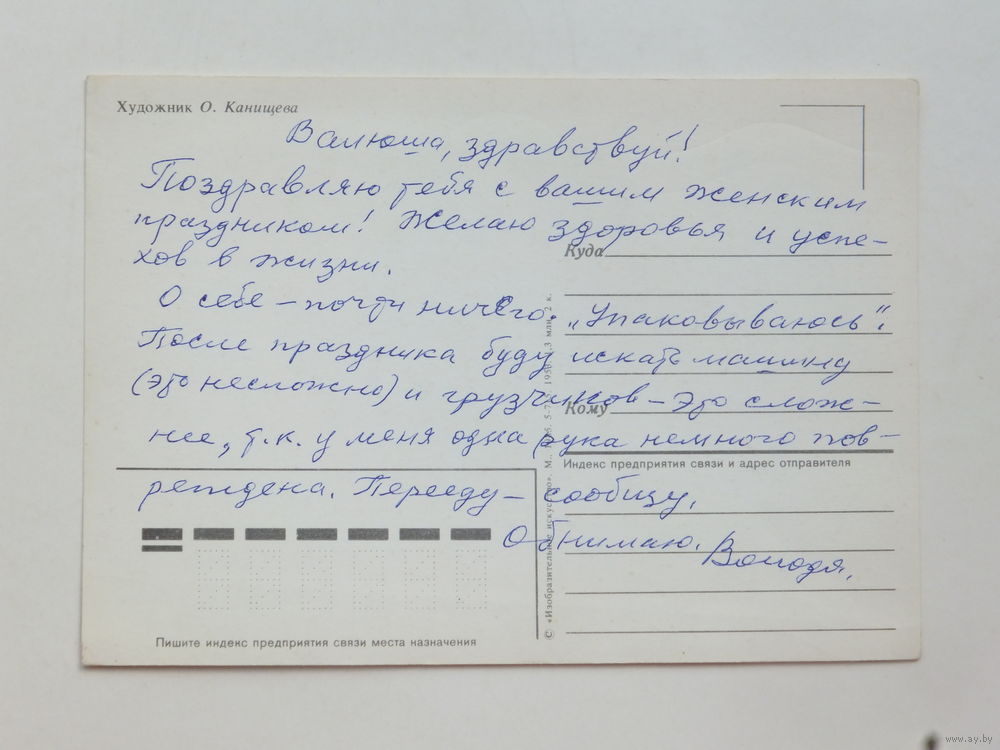 Художник О. Канищева
Валюша, здравствуй!
Поздравляю тебя с вашим женским
праздником! Желаю здоровья и успе-
хов в жизни.
Куда
О себе – почти ничего. „Упаковываюсь".
После праздника буду искать машину
(это несложно) и грузчиков – это слож-
Кому
нее, т.к. у меня одна рука немного пов-
Индекс предприятия связи и адрес отправителя
реждена. Перееду – сообщу.
Обнимаю. Володя.
© «Изобразительное искусство». М.,
Пишите индекс предприятия связи места назначения
www.ay.by